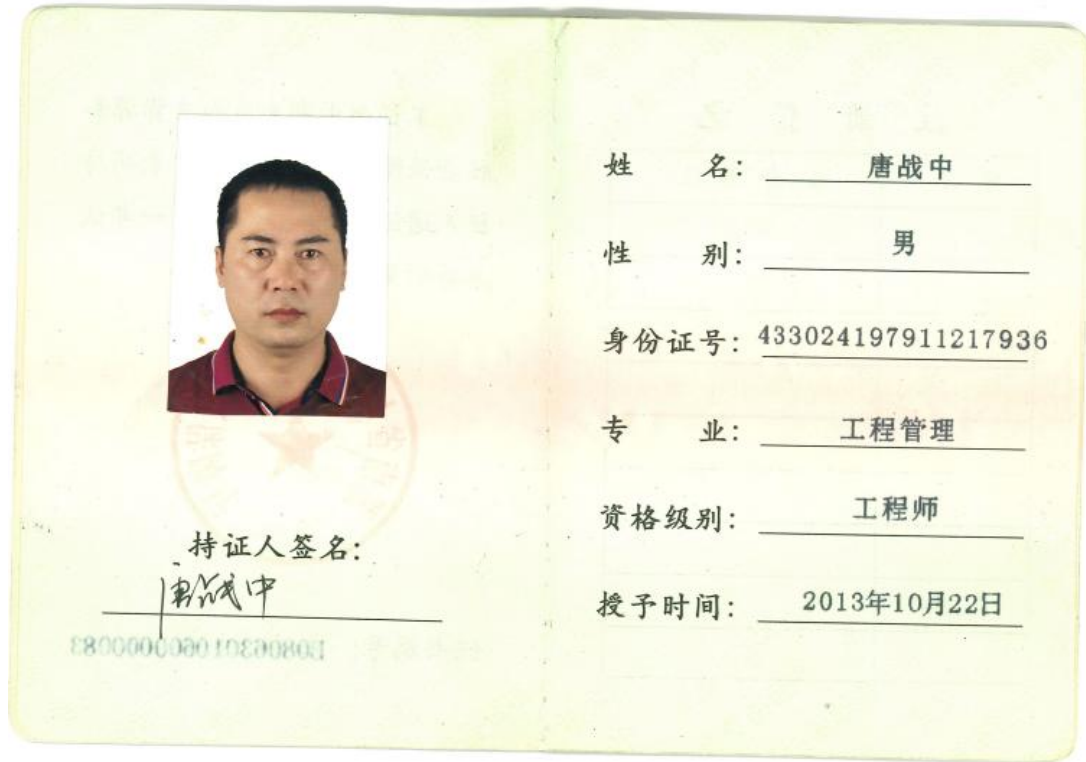 持证人签名:
唐战中
姓 名: 唐战中
性 别: 男
身份证号: 433024197911217936
专 业: 工程管理
资格级别: 工程师
授予时间: 2013年10月22日